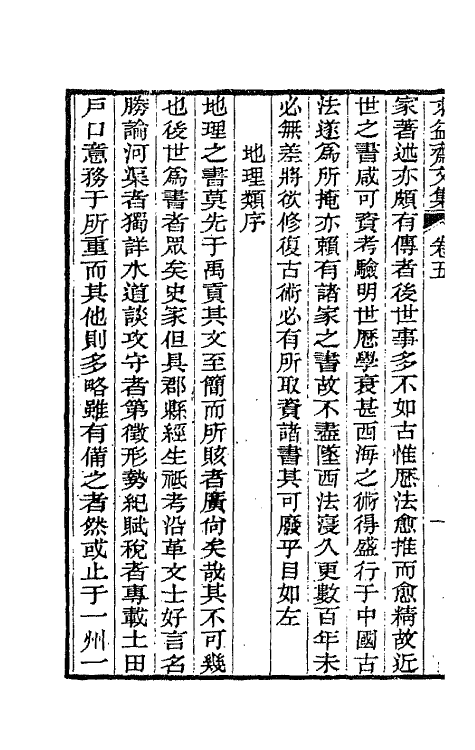 求益齋文集 卷五
家著述亦頗有傳者後世事多不如古惟厯法愈推而愈精故近
世之書咸可資考驗明世厯學衰甚西海之術得盛行于中國古
法遂爲所掩亦賴有諸家之書故不盡墜西法寖久更數百年未
必無差將欲修復古術必有所取資諸書其可廢乎目如左
地理類序
地理之書莫先于禹貢其文至簡而所賅者廣尙矣哉其不可幾
也後世爲書者眾矣史家但具郡縣經生祇考沿革文士好言名
勝論河渠者獨詳水道談攻守者第徵形勢紀賦稅者專載土田
戸口意務于所重而其他則多略雖有備之者然或止于一州一